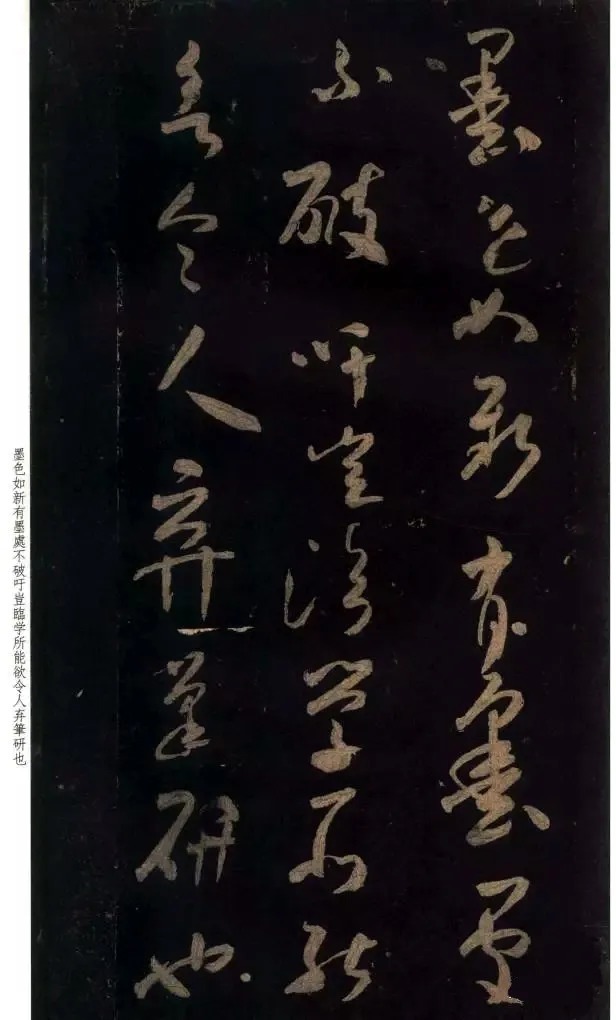 墨色如新有墨處
不破吁豈臨学所能
欲令人弃筆研也
墨色如新有墨處不破吁豈臨学所能欲令人弃筆研也